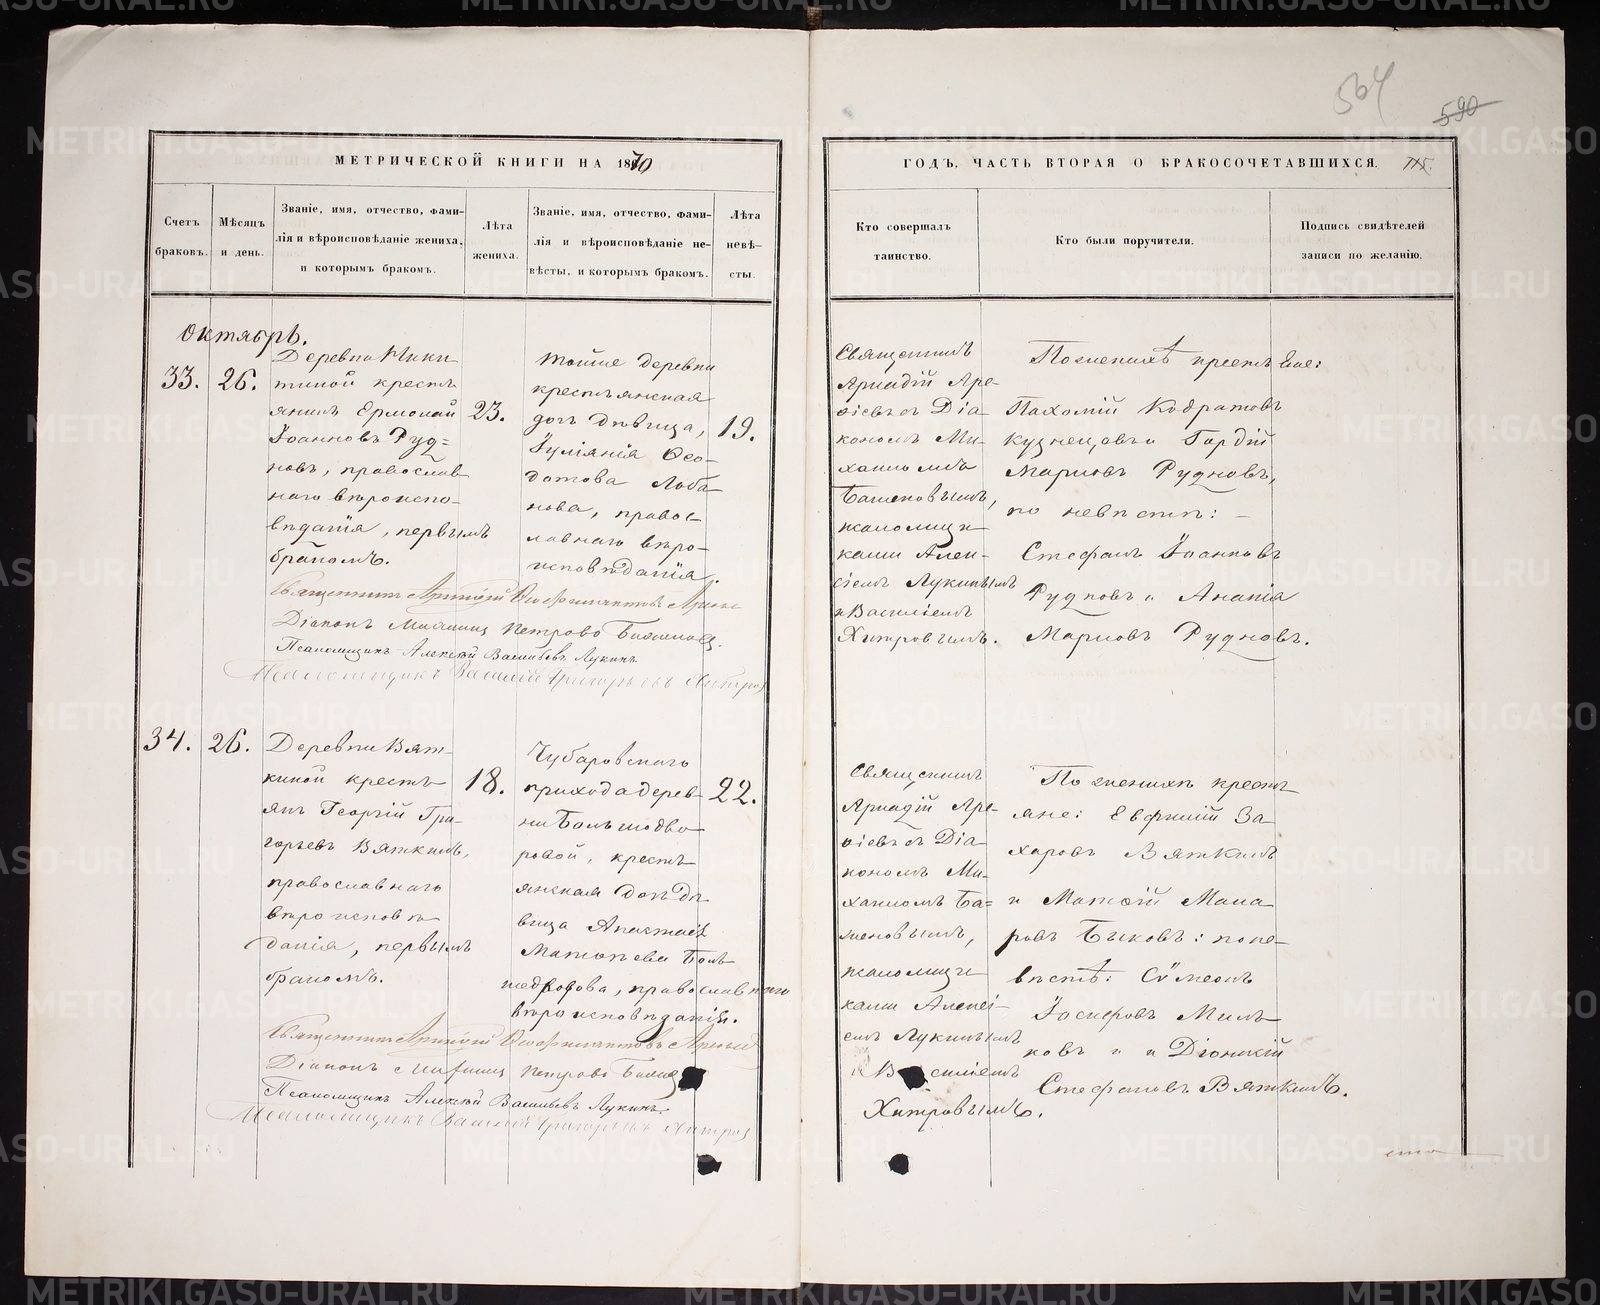 564
590
МЕТРИЧЕСКОЙ КНИГИ НА 1870
ГОДЪ, ЧАСТЬ ВТОРАЯ О БРАКОСОЧЕТАВШИХСЯ.
Счетъ
браковъ.
Мѣсяцъ
и день.
Званіе, имя, отчество, фами-
лія и вѣроисповѣданіе жениха,
и которымъ бракомъ.
Лѣта
жениха.
Званіе, имя, отчество, фами-
лія и вѣроисповѣданіе не-
вѣсты, и которымъ бракомъ.
Лѣта
невѣ-
сты.
Кто совершалъ
таинство.
Кто были поручители.
Подпись свидѣтелей
записи по желанію.
Октябрь.
33.
26.
Деревни Ники-
тиной кресть
янинъ Ермолай
Іоанновъ Руд=
новъ, православ
наго вѣроиспо-
вѣданія, первымъ
бракомъ.
23.
Тойже деревни
крестьянская
дочь дѣвица,
Іуліанія Ѳео-
дотова Лоба
нова, правос-
лавнаго вѣро-
исповѣданія.
19.
Священникъ
Аркадій Аре-
ѳіевъ съ Діа
кономъ Ми-
хаиломъ
Баженовымъ,
псаломщи
ками Алек-
сіемъ Лукинымъ
и Василіемъ
Хитровымъ.
По женихѣ крестьяне:
Пахомій Кодратовъ
Кузнецовъ и Гордій
Марковъ Рудновъ,
по невѣстѣ: -
Стефанъ Іоанновъ
Рудновъ и Ананія
Марковъ Рудновъ.
Священникъ Аркадій Ѳеофилактовъ
Діаконъ Михаилъ Петровъ Баженовъ.
Псаломщикъ Алексѣй Васильевъ Лукинъ
Псаломщикъ Василій Григорьевъ Хитров
34.
26.
Деревни Вят-
киной кресть
янъ Георгій Гри
горьевъ Вяткинъ,
православнаго
вѣроисповѣ
данія, первымъ
бракомъ.
18.
Чубаровскаго
прихода дерев-
ни Большедво
ровой, кресть
янская дочь дѣ
вица Анастасія
Матѳѣева Боль
шедворова, православнаго
вѣроисповѣданія.
22.
Священникъ
Аркадій Аре-
ѳіевъ съ Діа
кономъ Ми-
хаиломъ Ба=
женовымъ,
псаломщи
ками Алексі-
емъ Лукинымъ
и Василіемъ
Хитровымъ.
По женихѣ кресть
яне: Евфимій За
харовъ Вяткинъ
и Матѳій Мака
ровъ Быковъ: по не-
вѣстѣ: Сѵмеонъ
Іосифовъ Миль
ковъ и Діонисій
Стефановъ Вяткинъ.
Священникъ Аркадій Ѳеофилактовъ
Діаконъ Михаилъ Петровъ
Псаломщикъ Алексѣй Васильевъ Лукинъ.
Псаломщикъ Василій Григорьевъ Хитров
METRIKI.GASO-URAL.RU